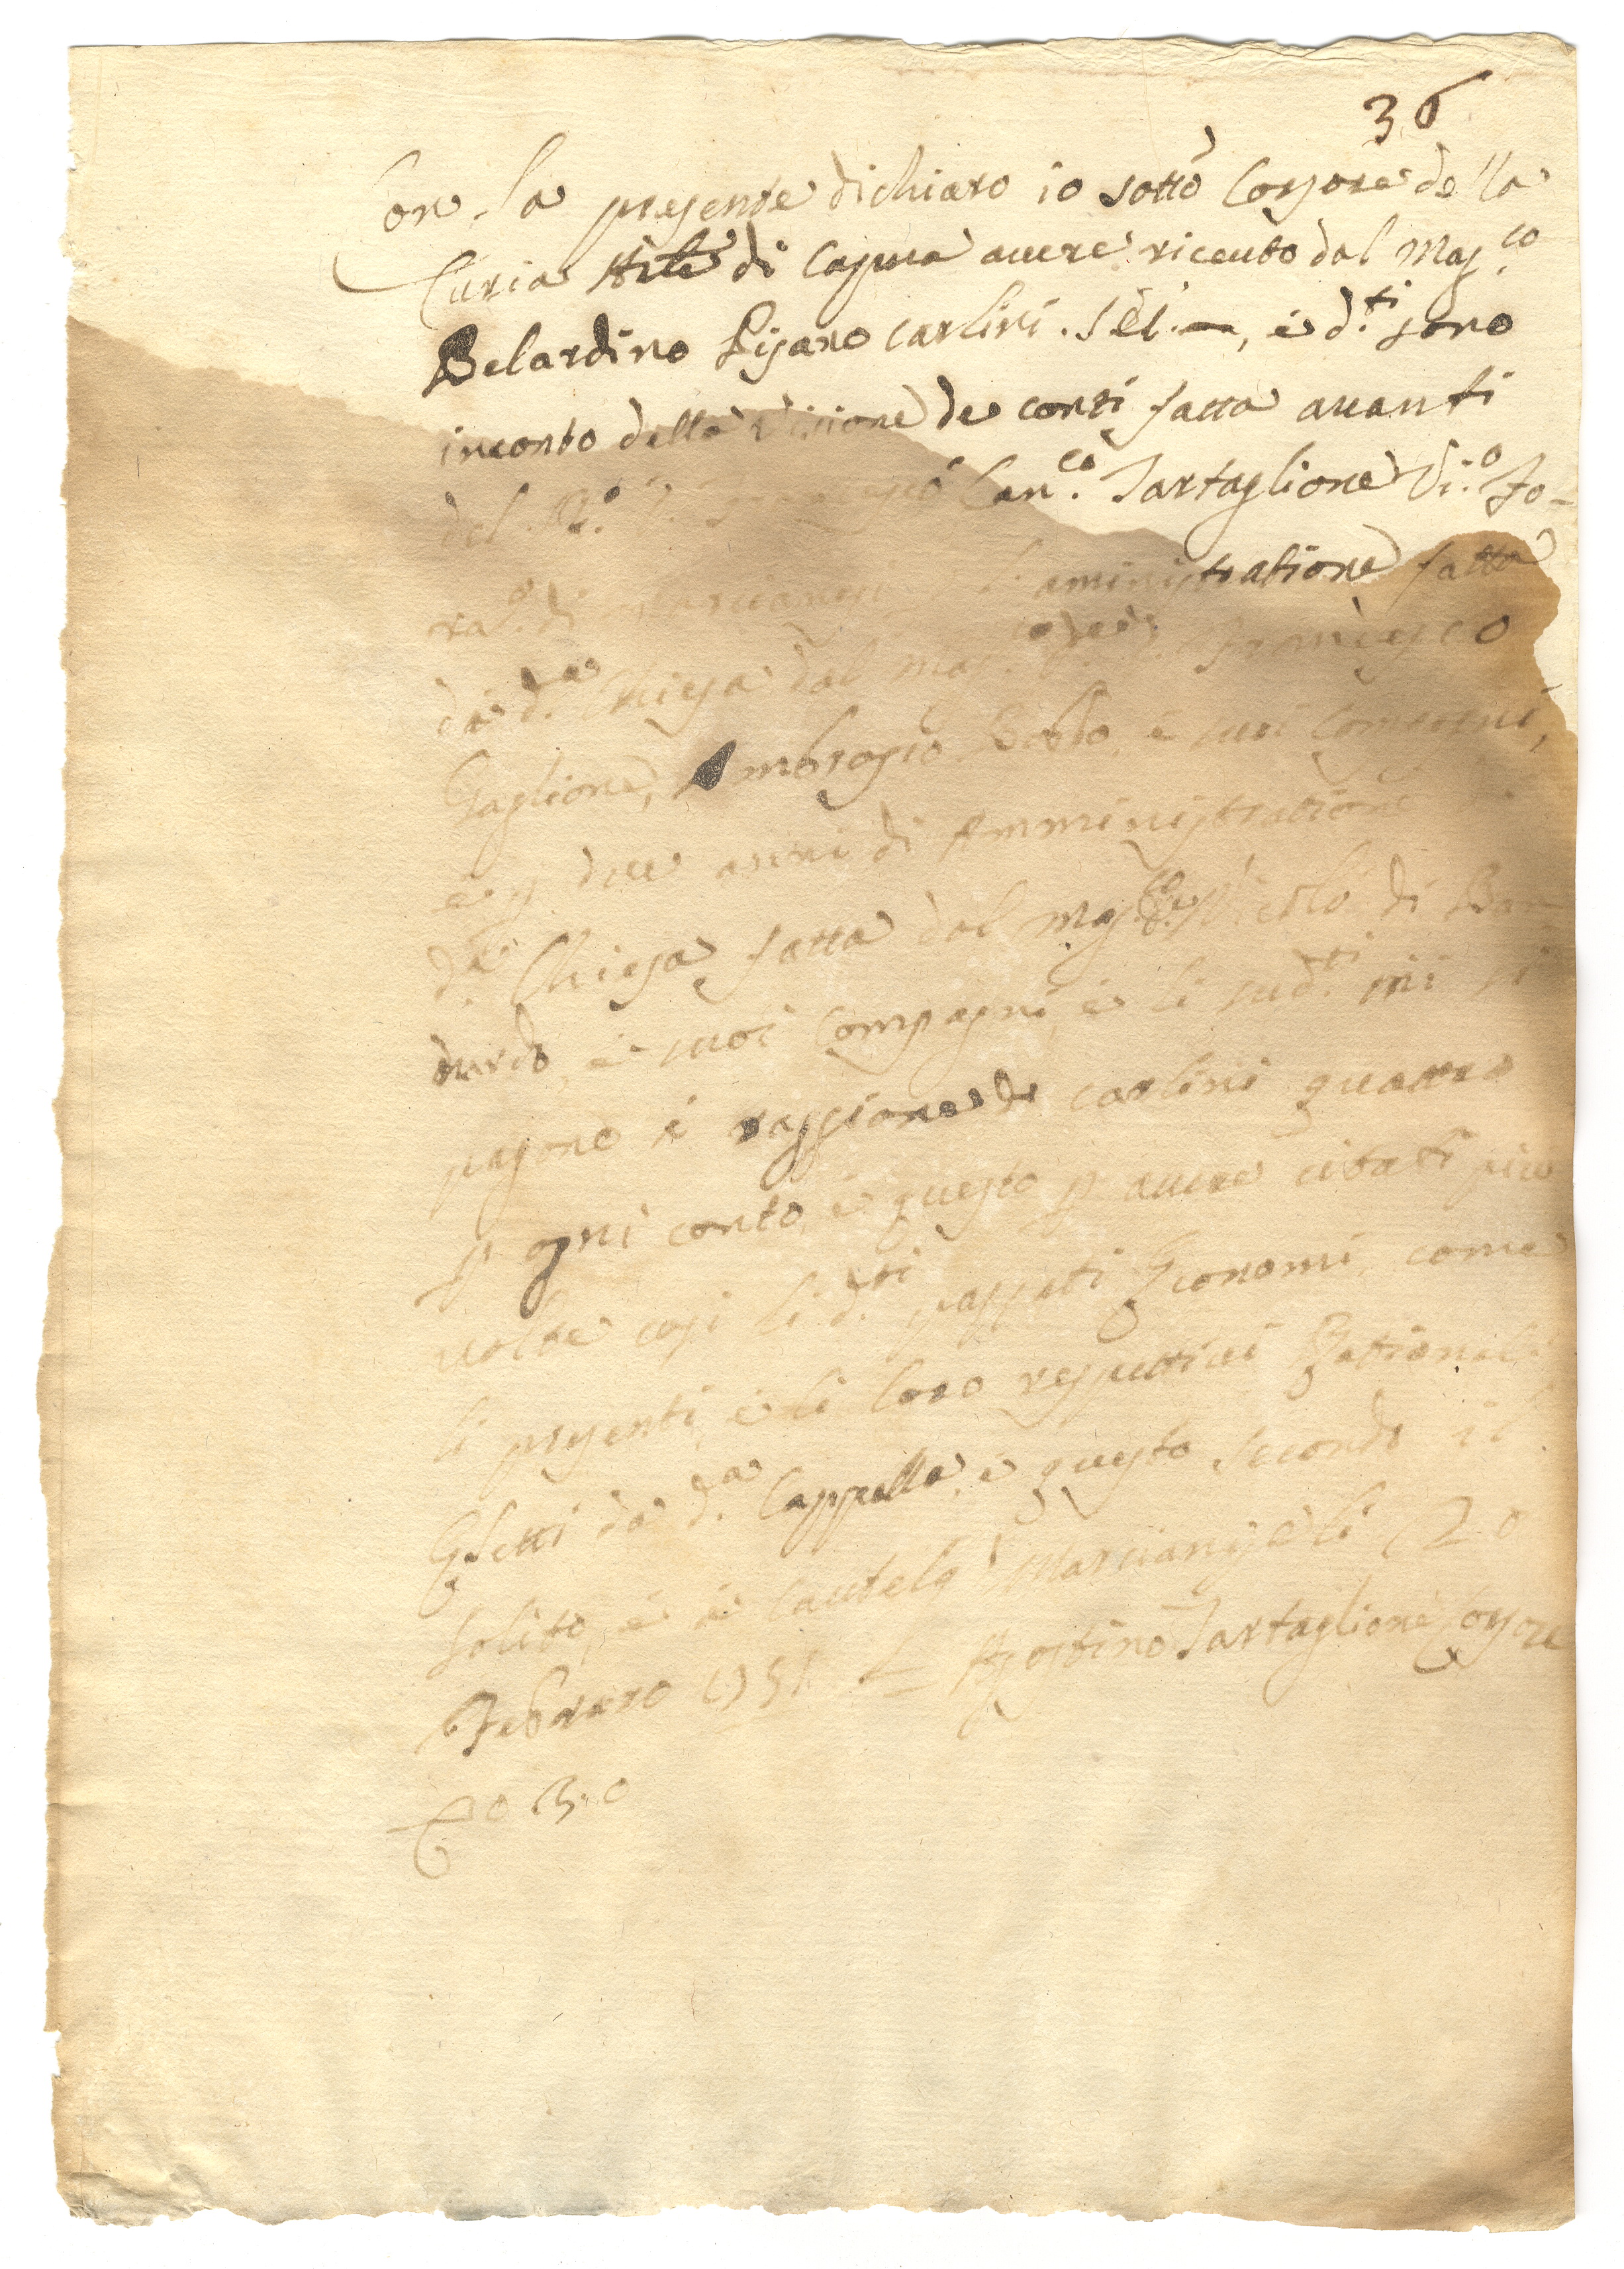 36
Con la presente dichiaro io sotto Corsore della
Curia Arle di Capua auere riceuto dal Mag.co
Belardino Pisano carlini . Sei. —, e d.ti sono
inconto della visione de conti fatta auanti
del R.o Can.co Tartaglione Vi.o Fo-
ra.o di Marcianesi aministratione fatta
da d.a Chiesa dal Mag.co Francesco
Taglione, Ambrogio e suoi Compagni,
e p due anni di Amministratione
d.a Chiesa fatta dal Mag.co Nicolò di
e suoi Compagni, e li sud.ti mi si
pagono à raggione de carlini quattro
p ogni conto, e questo p auere citati piu
volte cosi li d.ti passati Economi, come
li presenti, e li loro respettivi Rationali
Eletti da d.a Cappella, e questo secondo il
solito, e à cautela Marcianise li 20
Febraro 1751 Agostino Tartaglione Corsore